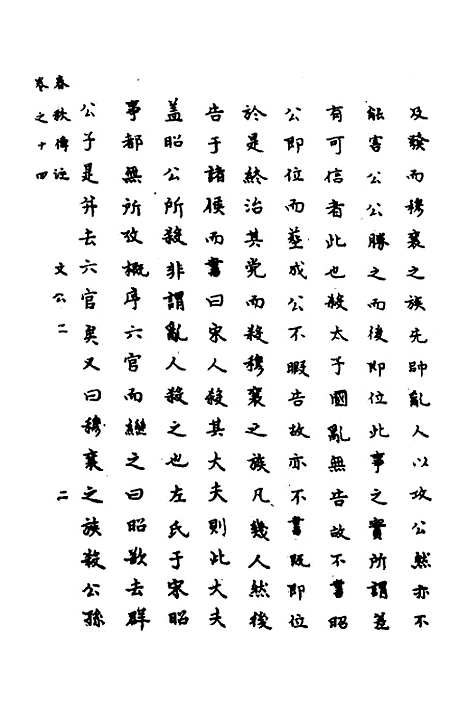 及發而穆襄之族先帥亂人以攻公然亦不
能害公公勝之而後即位此事之實所謂差
有可信者此也殺太子國亂無告故不書昭
公即位而葬成公不暇告故亦不書既即位
於是終治其党而殺穆襄之族凡幾人然後
告于諸侯而書曰宋人殺其大夫則此大夫
盖昭公所殺非謂亂人殺之也左氏于宋昭
事都無所攷概序六官而繼之曰昭欲去群
公子是并去六官矣又曰穆襄之族殺公孫
春秋傳註
卷之十四
文公二
二